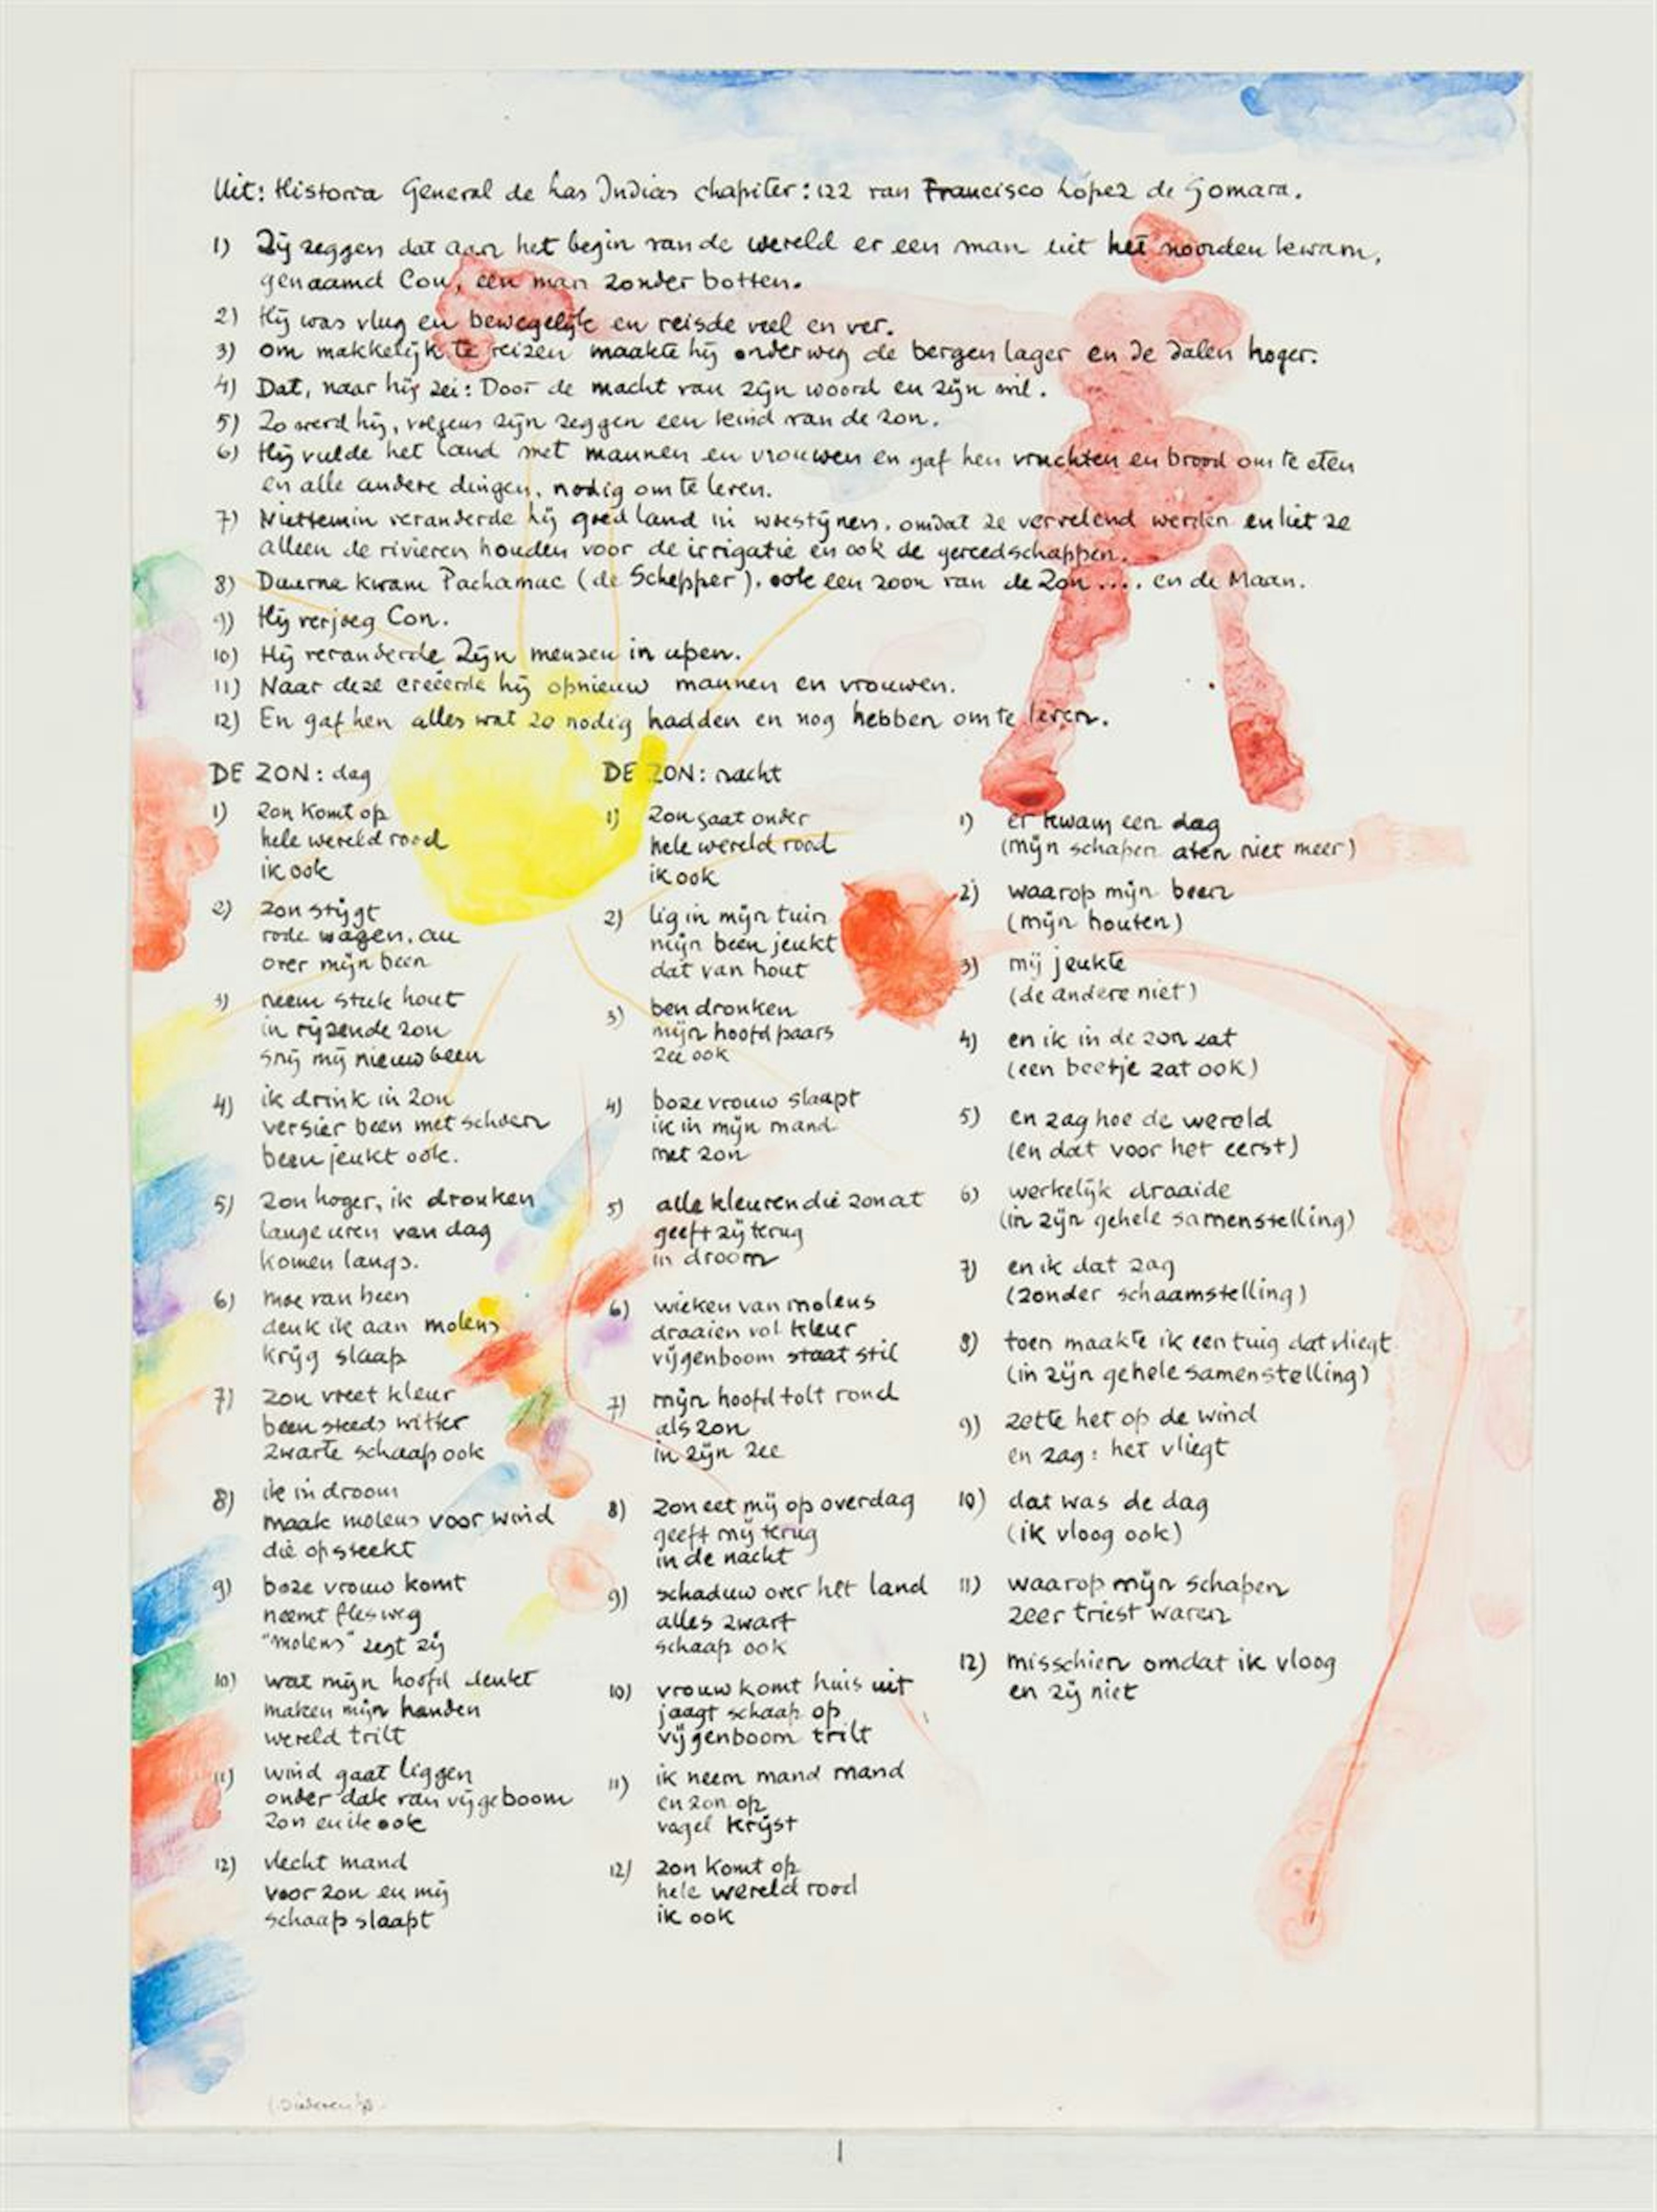 Uit: Historia General de Las Indias chapiter: 122 van Francisco Lopez de Gomara.
1) Zij zeggen dat aan het begin van de wereld er een man uit het noorden kwam,
genaamd Con, een man zonder botten.
2) Hij was vlug en bewegelijk en reisde veel en ver.
3) om makkelijk te reizen maakte hij onderweg de bergen lager en de dalen hoger.
4) Dat, naar hij zei: Door de macht van zijn woord en zijn wil.
5) Zo werd hij, volgens zijn zeggen een kind van de zon.
6) Hij vulde het land met mannen en vrouwen en gaf hen vruchten en brood om te eten
en alle andere dingen, nodig om te leven.
7) Niettemin veranderde hij goed land in woestijnen, omdat ze vervelend werden en liet ze
alleen de rivieren houden voor de irrigatie en ook de gereedschappen.
8) Daarna kwam Pachamac (de Schepper), ook een zoon van de Zon .... en de Maan.
9) Hij verjoeg Con.
10) Hij veranderde Zijn mensen in apen.
11) Naar deze creëerde hij opnieuw mannen en vrouwen.
12) En gaf hen alles wat zo nodig hadden en nog hebben om te leven.
DE ZON: dag
1) zon komt op
hele wereld rood
ik ook
2) zon stijgt
rode wagen, au
over mijn been
3) neem stuk hout
in rijzende zon
snij mij nieuw been
4) ik drink in zon
versier been met schoen
been jeukt ook.
5) zon hoger, ik dronken
lange uren van dag
komen langs.
6) moe van been
denk ik aan molens
krijg slaap
7) zon vreet kleur
been steeds witter
zwarte schaap ook
8) ik in droom
maak molens voor wind
die opsteekt
9) boze vrouw komt
neemt fles weg
"molens" zegt zij
10) wat mijn hoofd denkt
maken mijn handen
wereld trilt
11) wind gaat liggen
onder dak van vijgeboom
zon en ik ook
12) vlecht mand
voor zon en mij
schaap slaapt
DE ZON: nacht
1) zon gaat onder
hele wereld rood
ik ook
2) lig in mijn tuin
mijn been jeukt
dat van hout
3) ben dronken
mijn hoofd paars
zee ook
4) boze vrouw slaapt
ik in mijn mand
met zon
5) alle kleuren die zon at
geeft zij terug
in droom
6) wieken van molens
draaien vol kleur
vijgenboom staat stil
7) mijn hoofd tolt rond
als zon
in zijn zee
8) zon eet mij op overdag
geeft mij terug
in de nacht
9) schaduw over het land
alles zwart
schaap ook
10) vrouw komt huis uit
jaagt schaap op
vijgenboom trilt
11) ik neem mand mand
en zon op
vagel krijst
12) zon komt op
hele wereld rood
ik ook
1) er kwam een dag
(mijn schapen aten niet meer)
2) waarop mijn been
(mijn houten)
3) mij jeukte
(de andere niet)
4) en ik in de zon zat
(een beetje zat ook)
5) en zag hoe de wereld
(en dat voor het eerst)
6) werkelijk draaide
(in zijn gehele samenstelling)
7) en ik dat zag
(zonder schaamstelling)
8) toen maakte ik een tuig dat vliegt
(in zijn gehele samenstelling)
9) zette het op de wind
en zag: het vliegt
10) dat was de dag
(ik vloog ook)
11) waarop mijn schapen
zeer triest waren
12) misschien omdat ik vloog
en zij niet